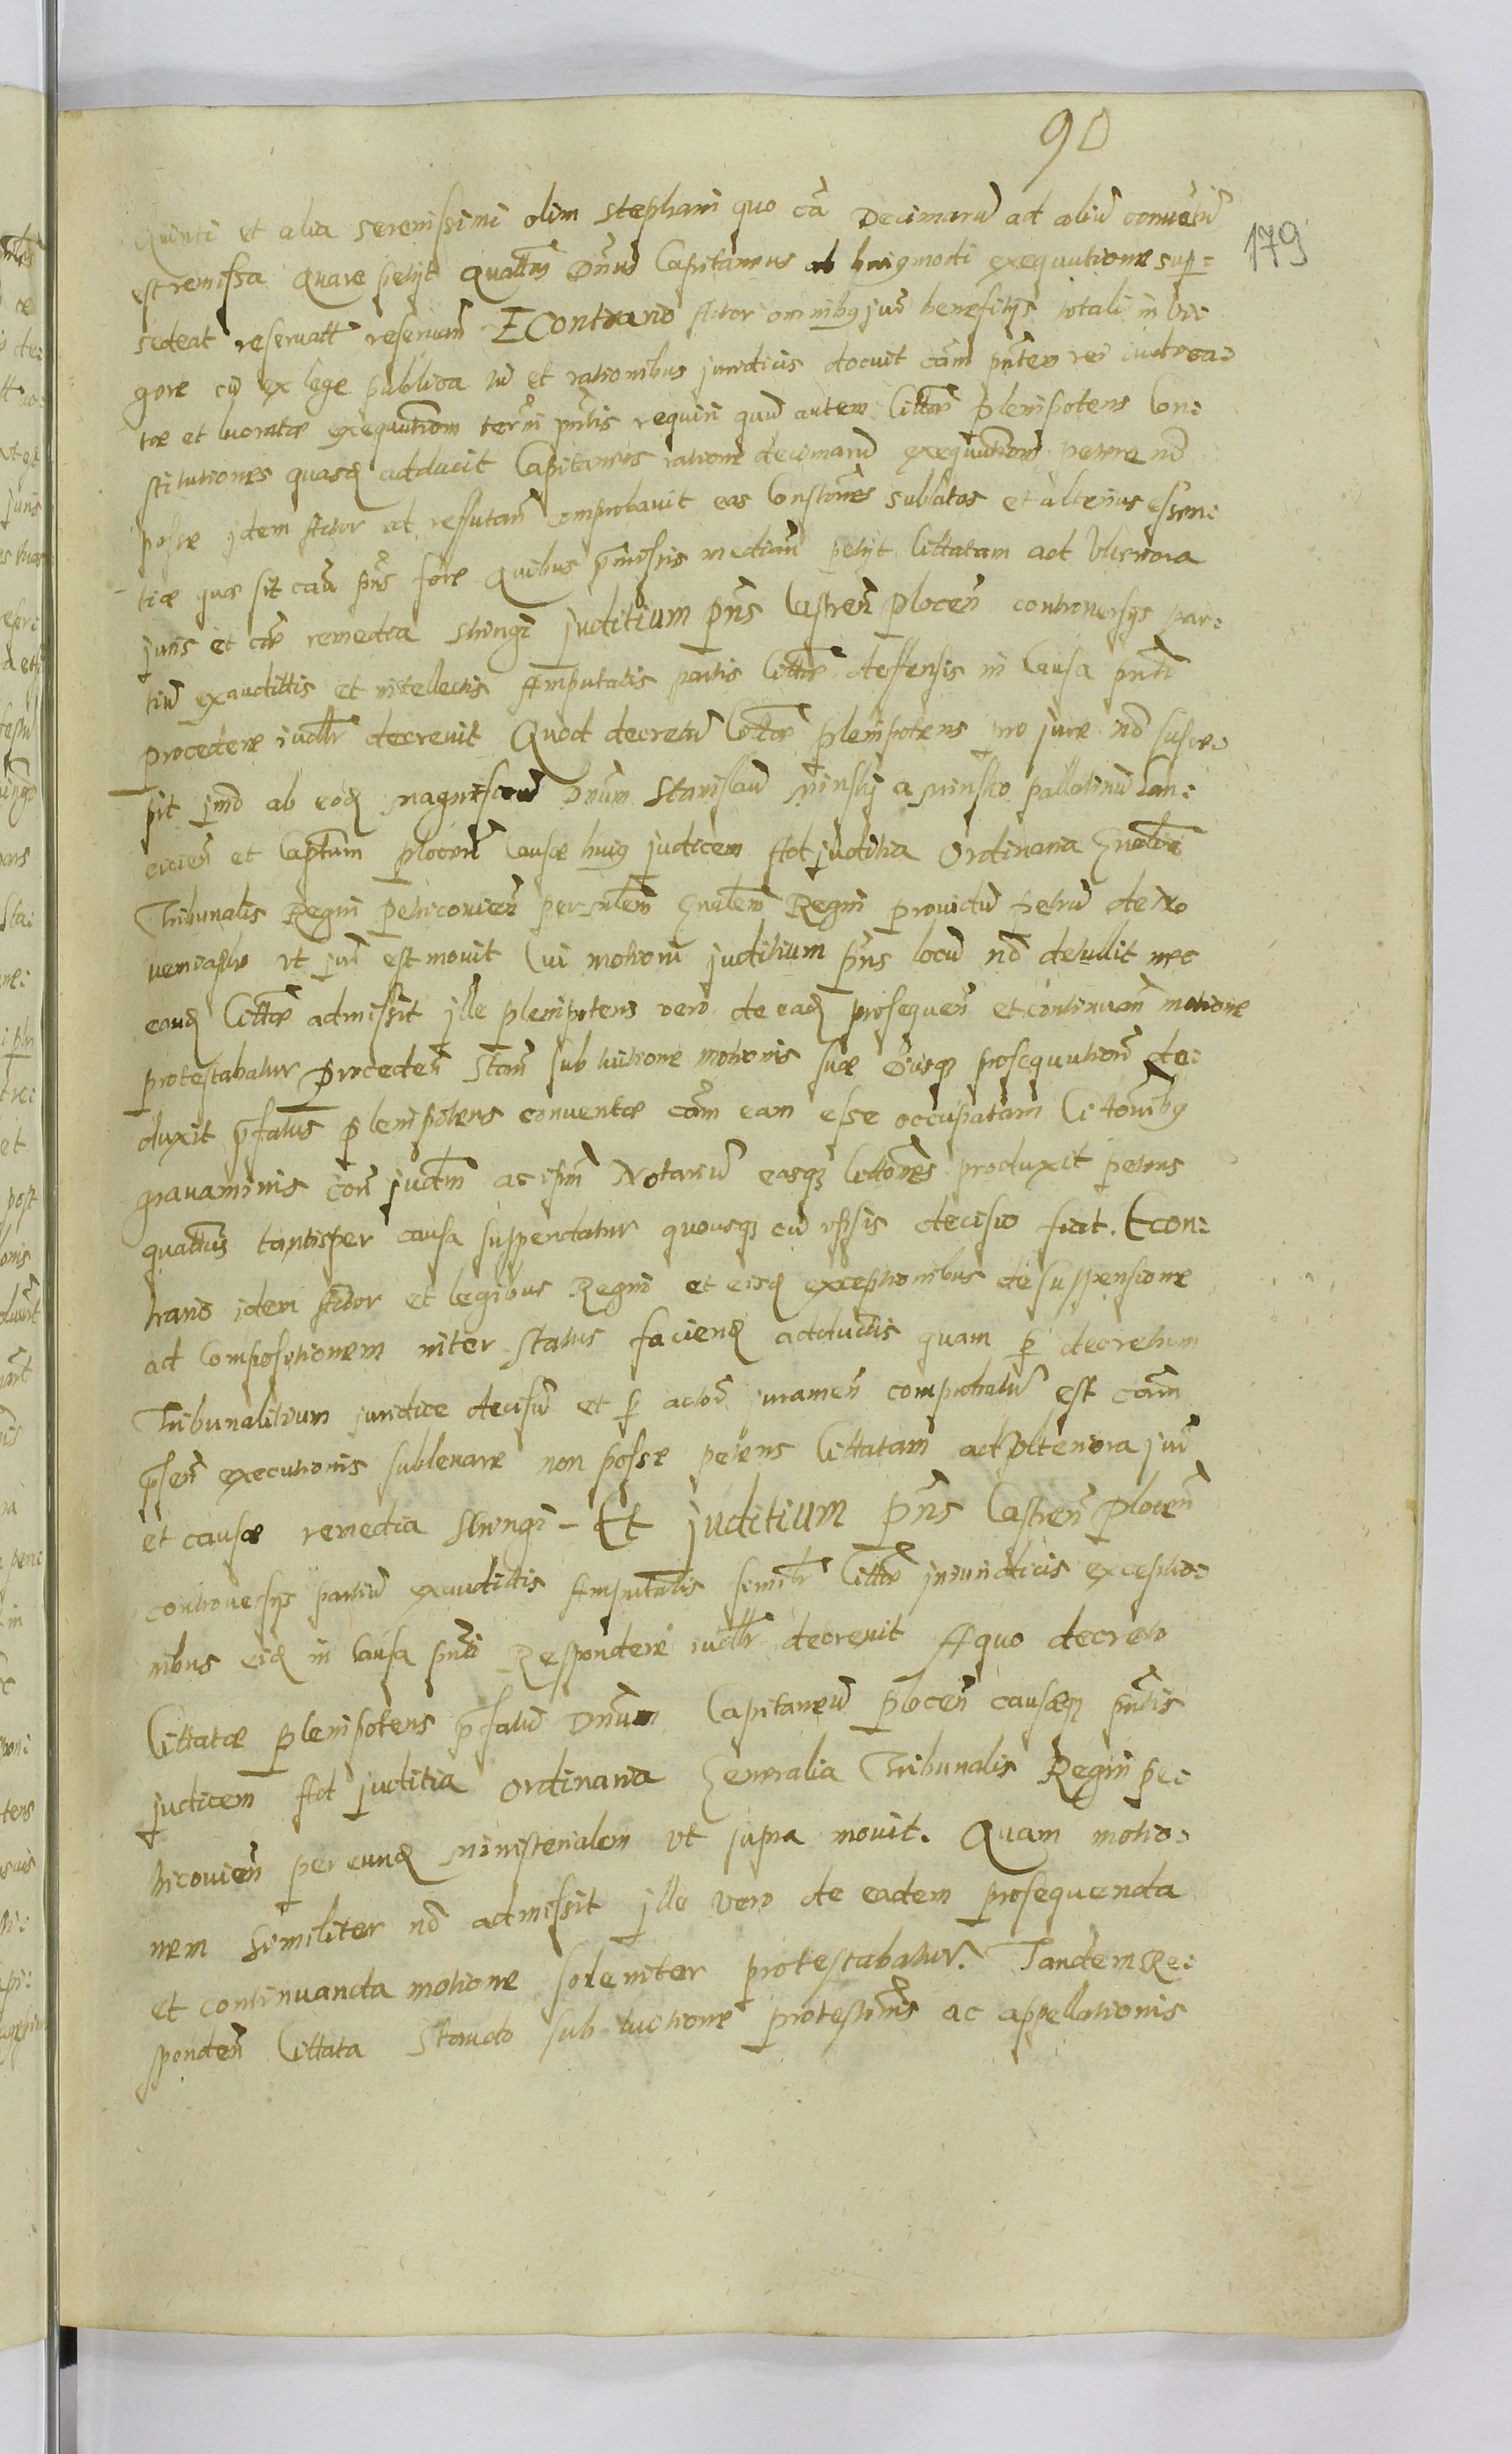 90
179
Quinti et alia serenissimi olim Stephani quo cã Decimarũ ad aliũ conuẽtũ
est remissa Quare petyt quatt9 Dñus Capitaneus ab hui9modi exequutione sup:
sedeat reseruatt reseruañ E Contrario Actor omnib9 juri benefitys totali in vi:
gore cũ ex lege publica tũ et rationibus juridicis docuit cãm pñtem rei iudica:
tae et lucratae exequutionem termĩ pñtis requiri quod autem Cittãe plenipotens Con:
stitutiones quasd adducit Capitaneus ratione decimarũ exequutionem nõ
posse idem Actor ad reffutañ comprobauit eas Constiõnes sublatas et alterius essen:
tiae quae sit caũ pñs fore Quibus p̃missis mediañ petyt Cittatam ad Ulteriora
juris et cãe remedia stringi juditium pñs Castreñ Ploceñ controuersys par:
tiũ exaudittis et intellectis Amputatis partis Cittãe deffensis in Causa pñti
procedere iudlr decreuit Quod decretũ Cittãe plenipotens pro jure nõ susce:
pit imõ ab eod magnificũ Dnũm Stanislaũ Minskj a Minsko pallatinũ Lan:
cicieñ et Captũm Ploceñ Causae hui9 judicem Ad juditia Ordinaria Gñalia
Tribunalis Regni petricouieñ per Mlem Gñalem Regni prouidũ petrũ de
ut jurĩ est mouit Cui motioni juditium pñs locũ nõ detullit nec
eand Cittãe admissit jlle plenipotens vero de ead prosequeñ et continuañ motione
protestabatur Procedeñ Stañ sub tutione motionis suae eiusq prosequutione de:
duxit p̃fatus plenipotens conuentae cãm eam esse occupatam Citõnib9
grauaminis coñ judm ac ipm Notariũ easq Cittones produxit petens
quatt9 tantisper causa suspendatur quousq cũ ipsis decisio fiat. Econ:
trario idem Actor et legibus Regni et eisd exceptionibus de suspensione
ad Compositionem inter Status faciend adductis quam p decretum
Tribunalitium juridice decisũ et p actorẽ jurameñ comprobatũ est cãm
p̃señ executionis subleuare non posse petens Cittatam ad Ulteriora juri
et causae remedia stringi – Et juditium pñs Castreñ Ploceñ
controuersys partiũ exaudittis Amputatis similr Cittãe injuridicis exceptio:
nibus eid in Causa pñti Respondere iudlr decreuit A quo decreto
Cittatae plenipotens p̃fatũ Dnũm Capitaneũ Ploceñ causaeq pñtis
judicem Ad juditia ordinaria Generalia Tribunalis Regni pe:
tricouieñ per eund Ministerialem ut supra mouit. Quam motio:
nem similiter nõ admissit jlle vero de eadem prosequenda
et continuanda motione soleniter protestabatur. Tandem Re:
spondeñ Cittata Stando sub tuitione protestõnis ac appellationis